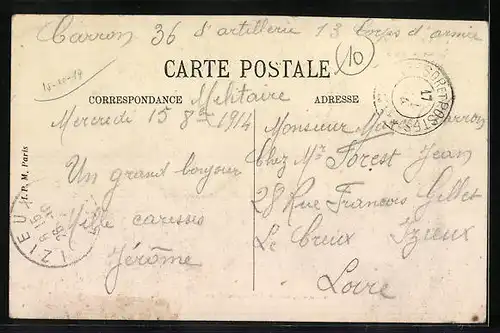 Carron 36 d'artillerie 13 Corps d'armée
10
15-10-19
CARTE POSTALE
CORRESPONDANCE Militaire ADRESSE
Mercredi 15 8bre 1914
Monsieur Carron
Chez Mr Forest Jean
Un grand bonjour
28 Rue Francois Gillet
Mille caresses
Le Creux Izieux
Jérôme
Loire
I. P. M, Paris
IZIEUX